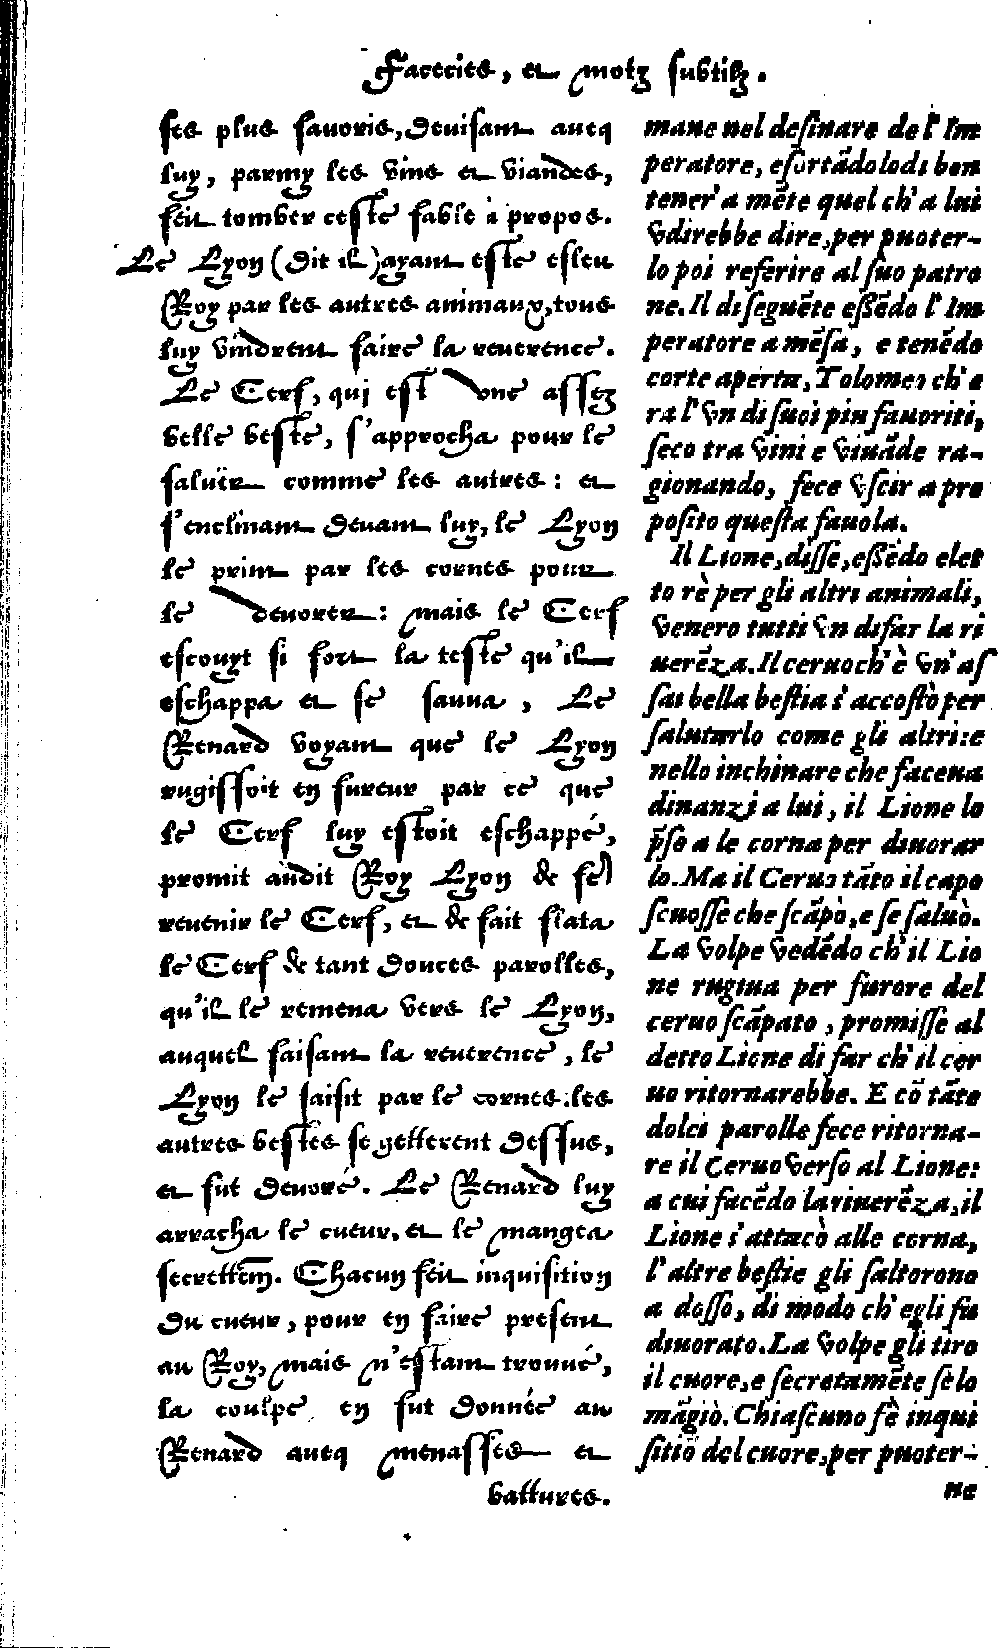 Facecies, et motz subtilz.
ses plus favoris, devisant avecq
luy, parmy les vins et viandes,
feit tomber ceste fable à propos.
Le Lyon (dit il) ayant esté esleu
Roy par les autres animaux, tous
luy vindrent faire la reverence.
Le Cerf, qui est une assez
belle beste, s'approcha pour le
saluër comme les autres: et
s'enclinant devant luy, le Lyon
le print par les cornes pour
le devorer: mais le Cerf
escouyt si fort la teste qu'il
eschappa et se sauva, Le
Renard voyant que le Lyon
rugissoit en fureur par ce que
le Cerf luy estoit eschappé,
promit audit Roy Lyon de fe
revenir le Cerf, et de fait flata
le Cerf de tant douces parolles,
qu'il le remena vers le Lyon,
auquel faisant la reverence, le
Lyon le saisit par le cornes. les
autres bestes se getterent dessus,
et fut devoré. Le Renard luy
arracha le cueur, et le mangea
secrettem̃. Chacun feit inquisition
du cueur, pour en faire present
au Roy, mais n'estant trouvé,
la coulpe en fut donnée au
Renard avecq menasses et
battures.
mane nel desinare de l'Im
peratore, esortãdolo di ben
tener' a mẽte quel ch' a lui
vdirebbe dire, per puoter-
lo poi referire al suo patro
ne. Il diseguẽte essẽdo l' Im
peratore a mẽsa, e tenẽdo
corte aperta, Tolomei ch'e
ra l' vn di suoi piu fauoriti,
seco tra vini e viuãde ra-
gionando, fece vscir a pro
posito questa fauola.
Il Lione, disse, essẽdo elet
to rè per gli altri animali,
venero tutti vn di far la ri
uerẽza. Il ceruo ch' è vn' as
sai bella bestia s' accostò per
salutarlo come gli altri: e
nello inchinare che facena
dinanzi a lui, il Lione lo
p̃se a le corna per diuorar
lo. Ma il Ceruo tãto il capo
scuosse che scãpò, e se saluò.
La volpe vedẽdo ch' il Lio
ne rugiua per furore del
ceruo scãpato, promisse al
detto Lione di far ch' il cer
uo ritornarebbe. E cõ tãte
dolci parolle fece ritorna-
re il Ceruo verso al Lione:
a cui facẽdo la riuerẽza, il
Lione s' attacò alle corna,
l' altre bestie gli saltorono
a dosso, di modo ch' egli fu
diuorato. La volpe gli tiro
il cuore, e secretamẽte se lo
mãgiò. Chiascuno fè inqui
sitiõ del cuore, per puoter-
ne